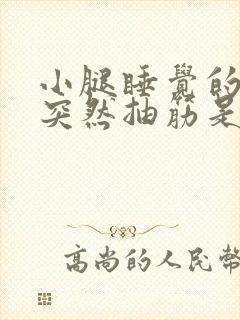 小腿睡覺的
突然抽筋是
高尚的人民幣